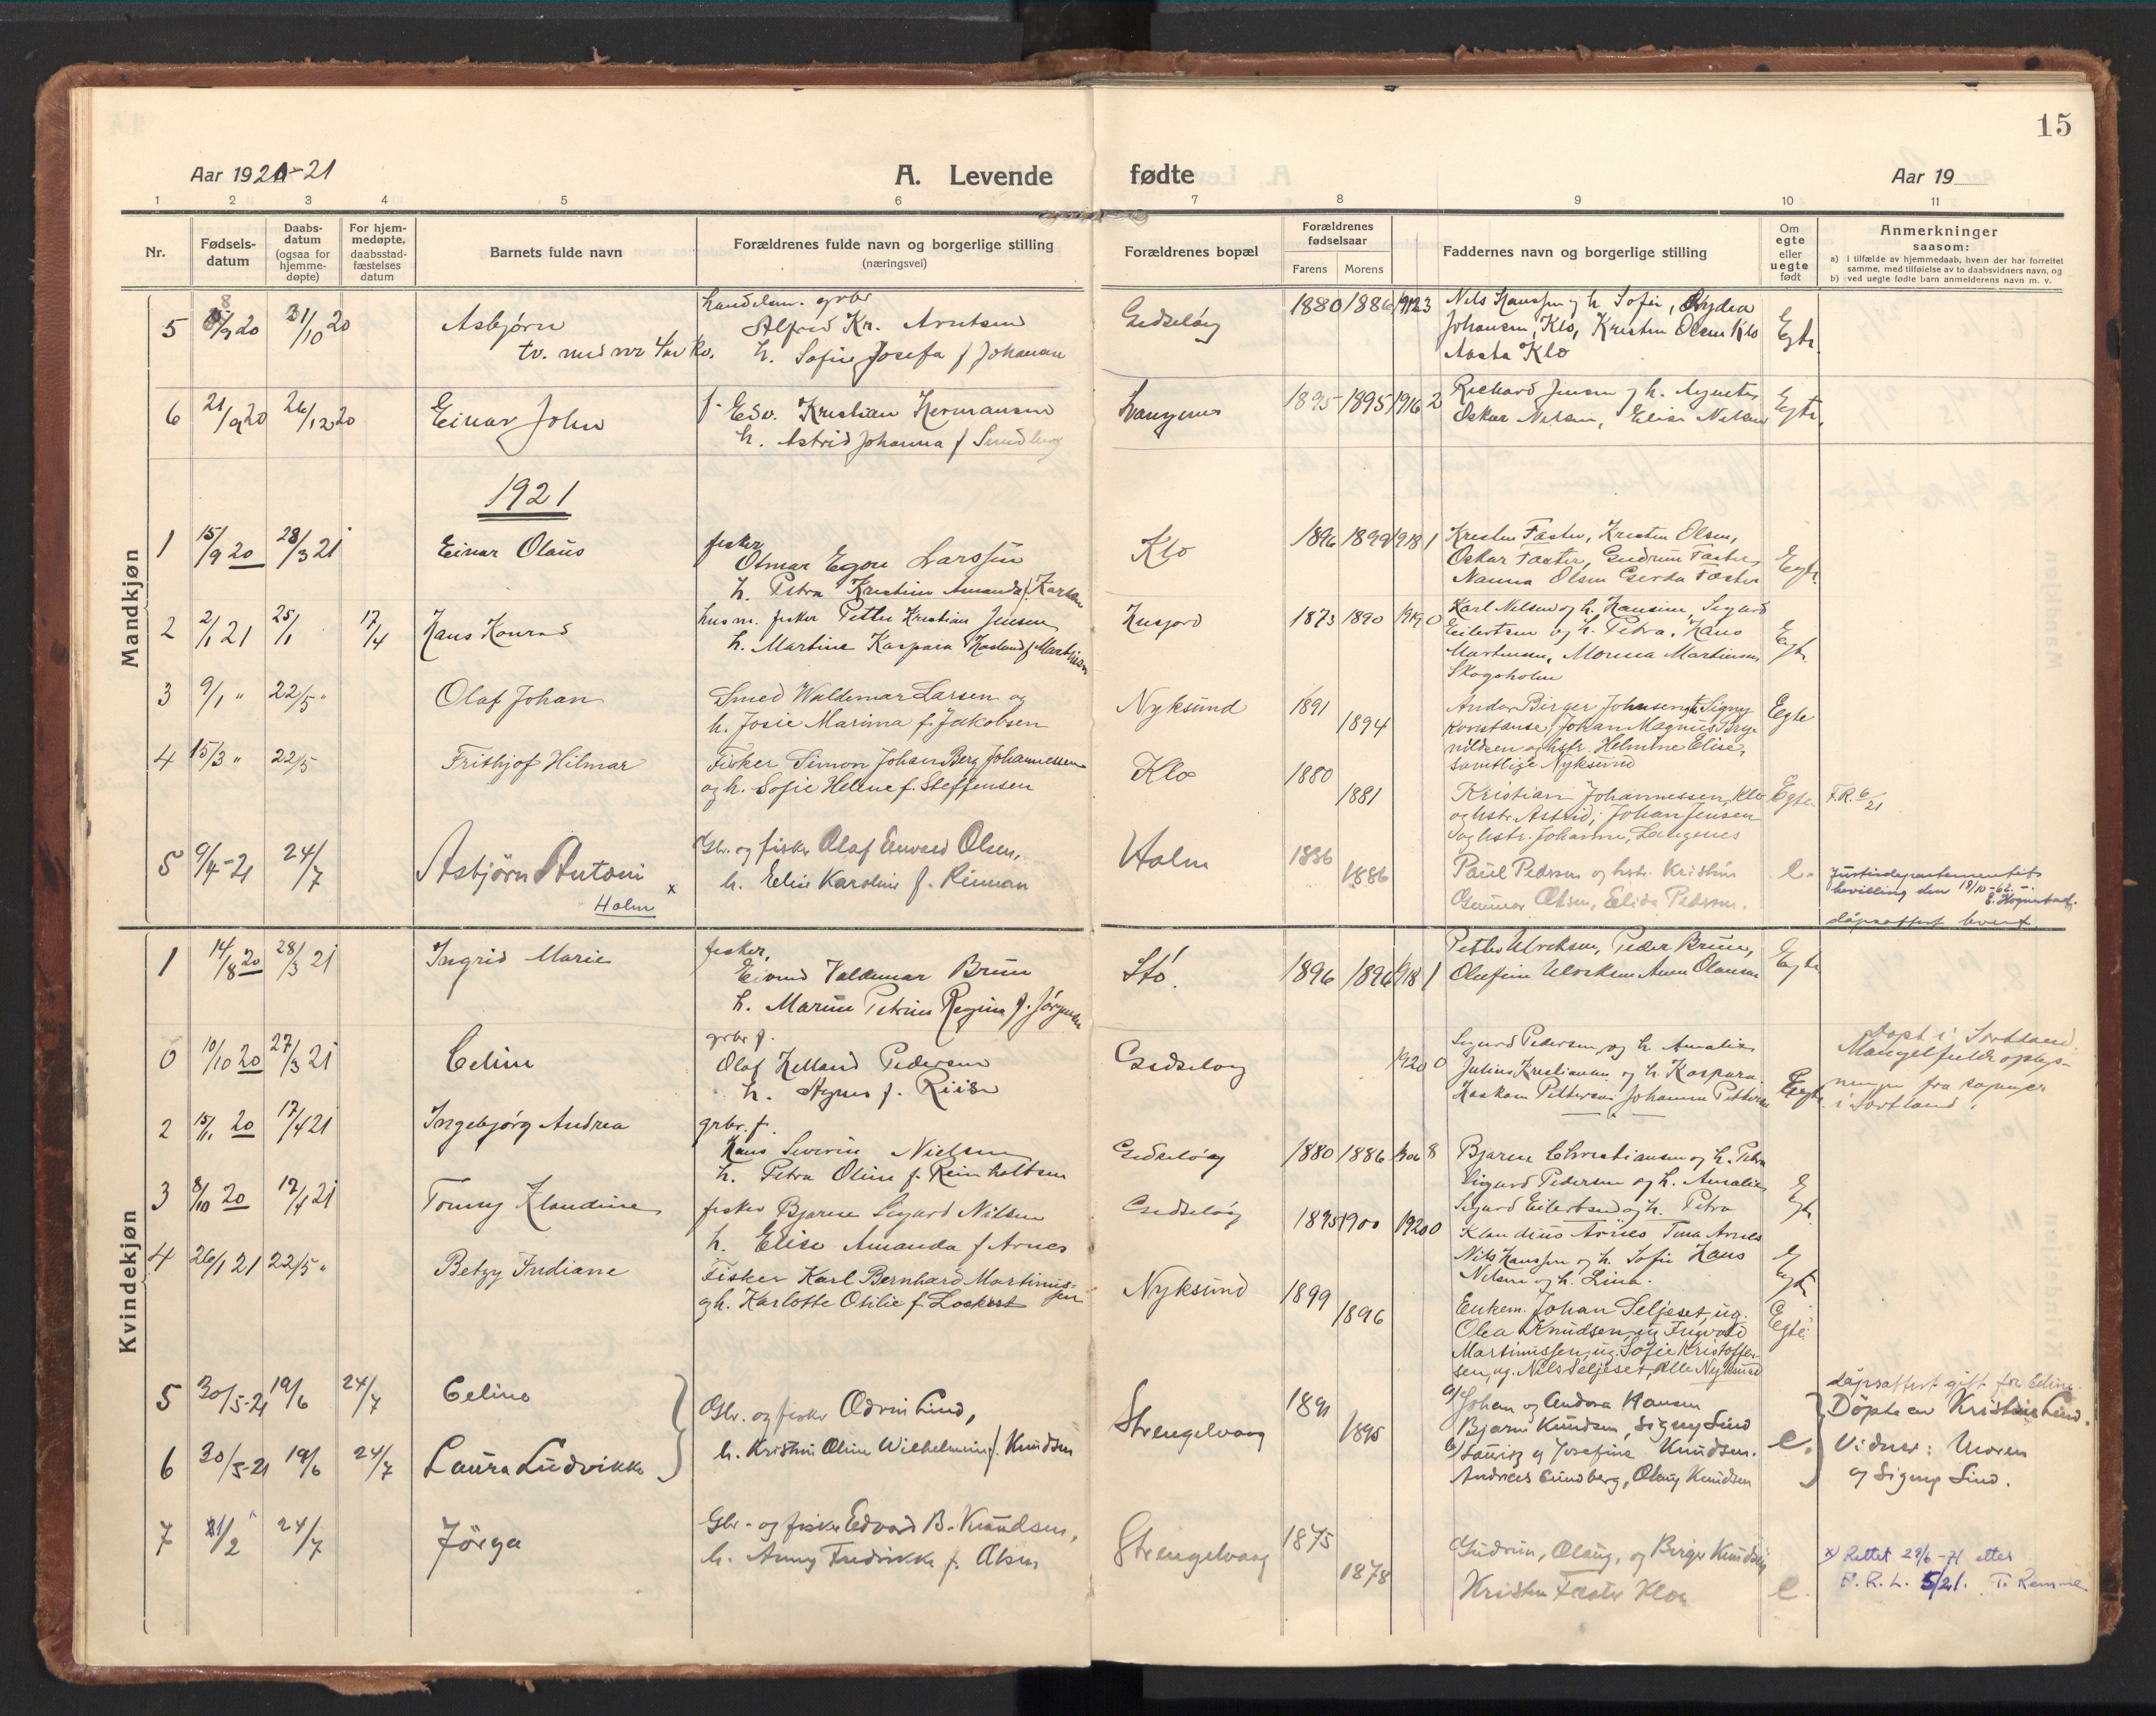 15
Aar 1920-21
A. Levende
fødte
Aar 19
1 2 3 4 5 6 7 8 9 10 11
Nr.
Fødsels-
datum
Daabs-
datum
(ogsaa for
hjemme-
døpte)
For hjem-
medøpte,
daabsstad-
fæstelses
datum
Barnets fulde navn
Forældrenes fulde navn og borgerlige stilling
(næringsvei)
Forældrenes bopæl
Forældrenes
fødselsaar
Farens Morens
Faddernes navn og borgerlige stilling
Om
egte
eller
uegte
født
Anmerkninger
saasom:
a) i tilfælde av hjemmedaab, hvem der har forrettet
samme, med tilføielse av to daabsvidners navn, og
b) ved uegte fødte barn anmelderens navn m. v.
Mandkjøn
5 8/9 20 31/10 20 Asbjørn
tv. med nr 4 av kv.
handelsm. grbr
Alfred Kr. Arntsen
h. Sofie Josefa f Johansen
Gedseløy 1880 1886 1912 3
Nils Hanssen og h. Sofie,
Johansen, Klo, Kristen Olsen Klo
Aasta Klo
Egte
6 21/9 20 26/12 20 Einar John
f. Edv. Kristian Hermansen
h. Astrid Johanna f Sundberg
Langenes 1895 1895 1916 2
Richard Jensen og h. Agnete
Oskar Nilsen, Elise Nilsen
Egte
1921
1 15/9 20 28/3 21 Einar Olaus
fisker
Otmar Egon Larssen
h. Petra Kristine Amanda f. Karlsen
Klo 1896 1899 1918 1
Kristen Fæster, Kristen Olsen,
Oskar Fæster, Gudrun Fæster
Nanna Olsen Gerda Fæster
Egte
2 2/1 21 25/1 17/4 Hans Konrad
husm. fisker Petter Kristian Jensen
h. Martine Kaspara Haslund f Martinsen
Husjord 1873 1890 1919 0
Karl Nilsen og h. Hansine, Sigurd
Eilertsen og h. Petra, Hans
Martinsen, Monna Martinsen
Skogsholm
Egte
3 9/1 " 22/5 " Olaf Johan
Smed Waldemar Larsen og
h. Josie Marima f. Jakobsen
Nyksund 1891 1894
Andor Birger Johnsen, h. Signy
Konstanse, Johan Magnus Bry-
nildsen og hstr. Helmine Elise,
samtlige Nyksund
Egte
4 15/3 " 22/5 Frithjof Hilmar
Fisker Simon Johan Berg Johannessen
og h. Sofie Helene f. Steffensen
Klo 1880 1881
Kristian Johannessen, Klo
og hstr. Astrid, Johan Jensen
og hstr. Johanne, Langenes
Egte F.R. 6/21
5 9/4-21 24/7 Asbjørn Antoni x
Holm
Gbr. og fisker Olaf Edvard Olsen,
h. Elise Karoline f. Kinnan
Holm 1886 1886
Paul Pedersen og hstr. Kristine
Gunnar Olsen, Elida Pedersen.
e.
Justisdepartementets
bevilling den 19/10-62.
dåpsattest levert.
Kvindekjøn
1 14/8 20 28/3 21 Ingrid Marie
fisker,
Eivind Valdemar Brun
h. Marine Petrine Regine f. Jørgensen
Stø. 1896 1896 1918 1
Petter Ulriksen, Peder Brun,
Olufine Ulriksen Anna Olausen
Egte
0 10/10 20 27/3 21 Celine
grbr f.
Olaf Helland Pedersen
h. Agnes f. Riise
Gedseløy 1920 0
Sigurd Pedersen og h Amalie
Julius Kristiansen og h. Kaspara
Haakon Pettersen Johanna Pettersen
Egte
Døpt i Sortland.
Mangelfulde oplys-
ninger fra sognepr
i Sortland.
2 15/11 20 17/4 21 Ingebjørg Andrea
grbr. f.
Hans Severin Nielsen
h. Petra Oline f. Reinholtsen
Gedseløy 1880 1886 1906 8
Bjarne Christiansen og h. Petra
Sigurd Pedersen og h. Amalie
Egte
3 8/10 20 17/4 21 Tonny Klaudine
fisker Bjarne Sigurd Nilsen
h. Elise Amanda f Arnes
Gedseløy 1895 1900 1920 0
Sigurd Eilertsen og h. Petra
Klaudius Arnes Tina Arnes
Nils Hanssen og h. Sofie Hans
Nilsen og h. Lina.
Egte
4 26/1 21 22/5 " Betzy Indiane
Fisker Karl Bernhard Martinus-
sen
og h. Karlotte Otilie f. Lockert
Nyksund 1899 1896
Enkem. Johan Seljeset, ug.
Olea Knudsen, ug Ingvald
Martinussen, ug. Sofie Kristoffer-
sen, ug. Nils Seljeset, alle Nyksund
Egte
5 30/5-21 19/6 24/7 Celine
6 30/5-21 19/6 24/7 Laura Ludvikke
Gbr. og fisker Odvin Lind,
h. Kristine Oline Wilhelmine f. Knudsen
Strengelvaag 1891 1895
a/ Johan og Andora Hansen
Bjarne Knudsen, Signy Lind
b/ Lauritz og Josefine Knudsen.
Andreas Sundberg, Olaug Knudsen
e.
dåpsattest gitt for Celine.
Døpt av Kristine Lind.
Vidner: Moren
og Signy Lind.
7 21/2 " 24/7 Jörga
Gbr- og fisker Edvard B. Knudsen,
h. Anny Fredrikke f. Olsen
Strengelvaag 1875 1878
Gudrun, Olaug, og Birger Knudsen
Kristen Fæster Kloe
e.
x) Rettet 29/6-71 etter
F.R.L. 5/21. T. Remme